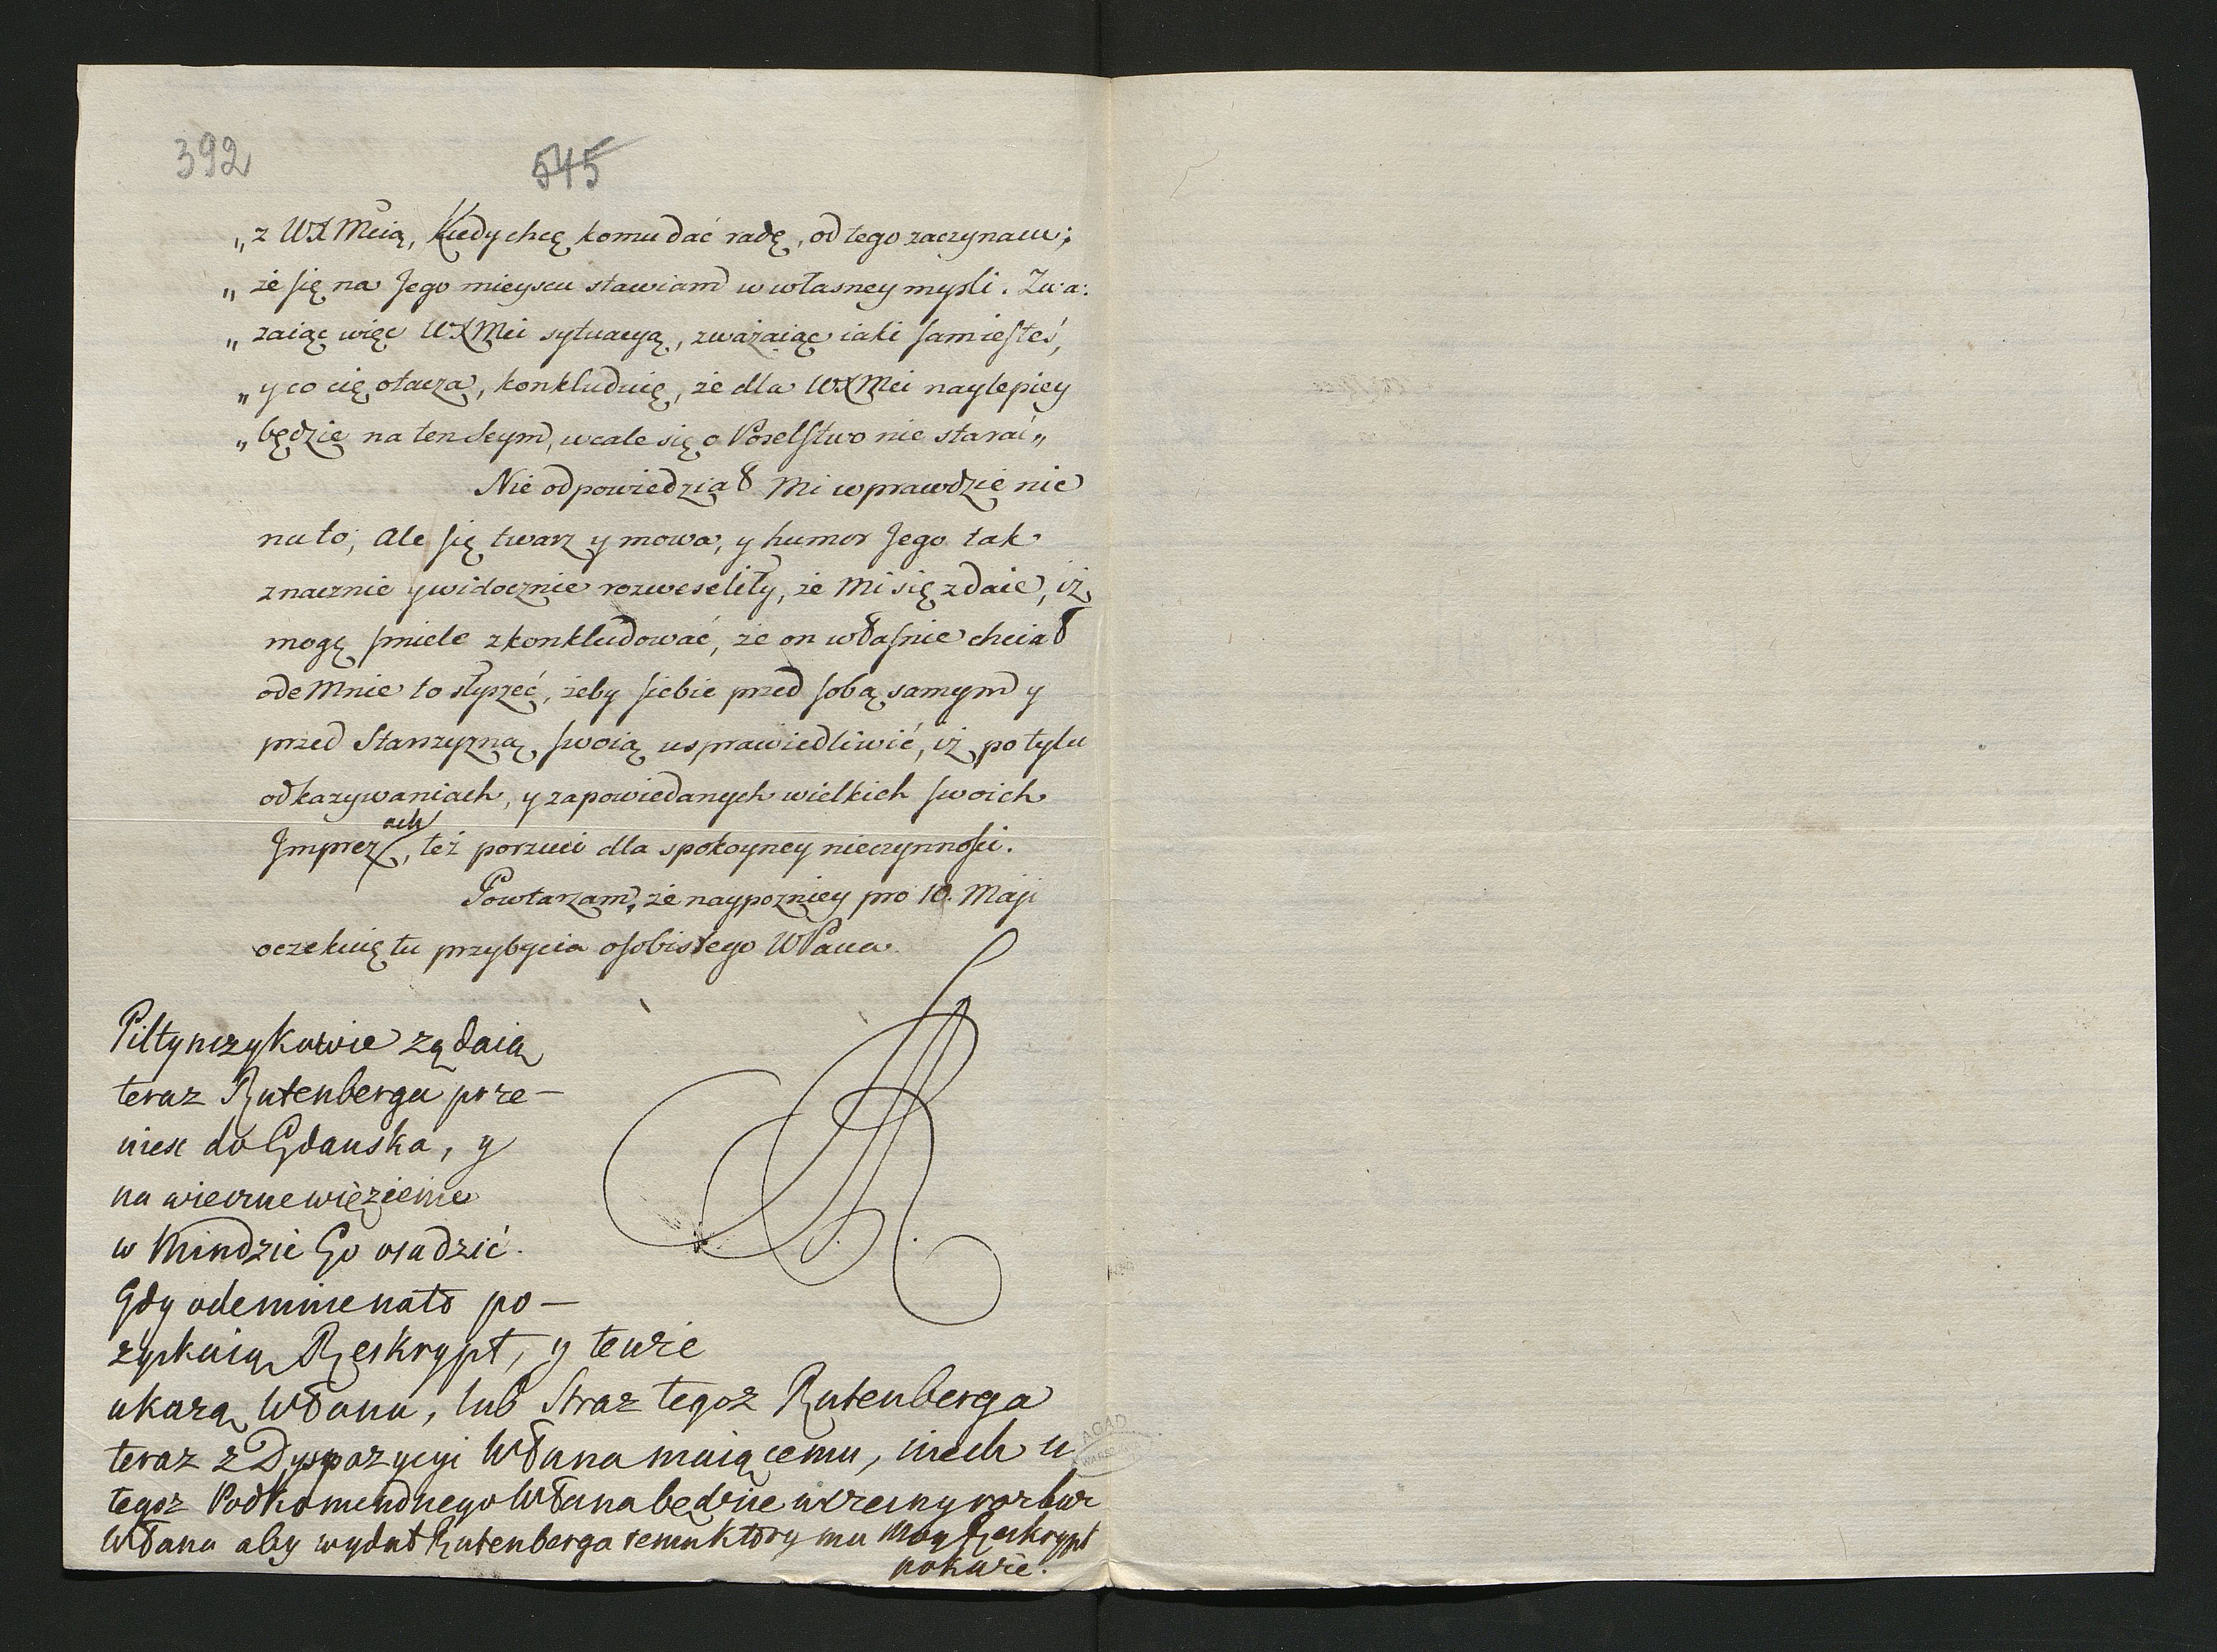 392
545
„z WXMcią, Kiedy chcę komu dać radę, od tego zaczynam;
„że się na Jego mieyscu stawiam w własney mysli. Zwa:
„zaiąc więc WXMci sytuacyą, zważaiąc iaki sam iesteś,
„y co cię otacza, konkluduię, że dla WXMci naylepiey
„będzie na ten Seym, wcale się o Poselstwo nie starać„
Nie odpowiedział Mi wprawdzie nic
na to; Ale się twarz y mowa, y humor Jego tak
znacznie y widocznie rozweseliły, że Mi się zdaie, iż
mogę smiele zkonkludować, że on własnie chciał
odeMnie to słyszeć, żeby siebie przed sobą samym y
przed Starszyzną swoią usprawiedliwić, iż po tylu
odkazywaniach, y zapowiedanych wielkich swoich
Imprezach, też porzuci dla spokoyney nieczynności.
Powtarzam, że naypozniey pro 10. Maji
oczekuię tu przybycia osobistego WPana.
Piltynczykowie ządaią
teraz Rutenberga prze-
niesc do Gdanska, y
na wieczne więzienie
w Mindzie Go osadzić.
Gdy odemnie na to po-
zyskaią Reskrypt, y tenże
ukazą WPanu, lub Straz tegoz Rutenberga
teraz z Dyspozycyi WPana maiącemu, niech u
tegoz Podkomendnego WPana będzie wczesny rozkaz
WPana aby wydał Rutenberga temu ktory mu Moy Reskrypt
pokaże.
AGAD
WARSZAWA